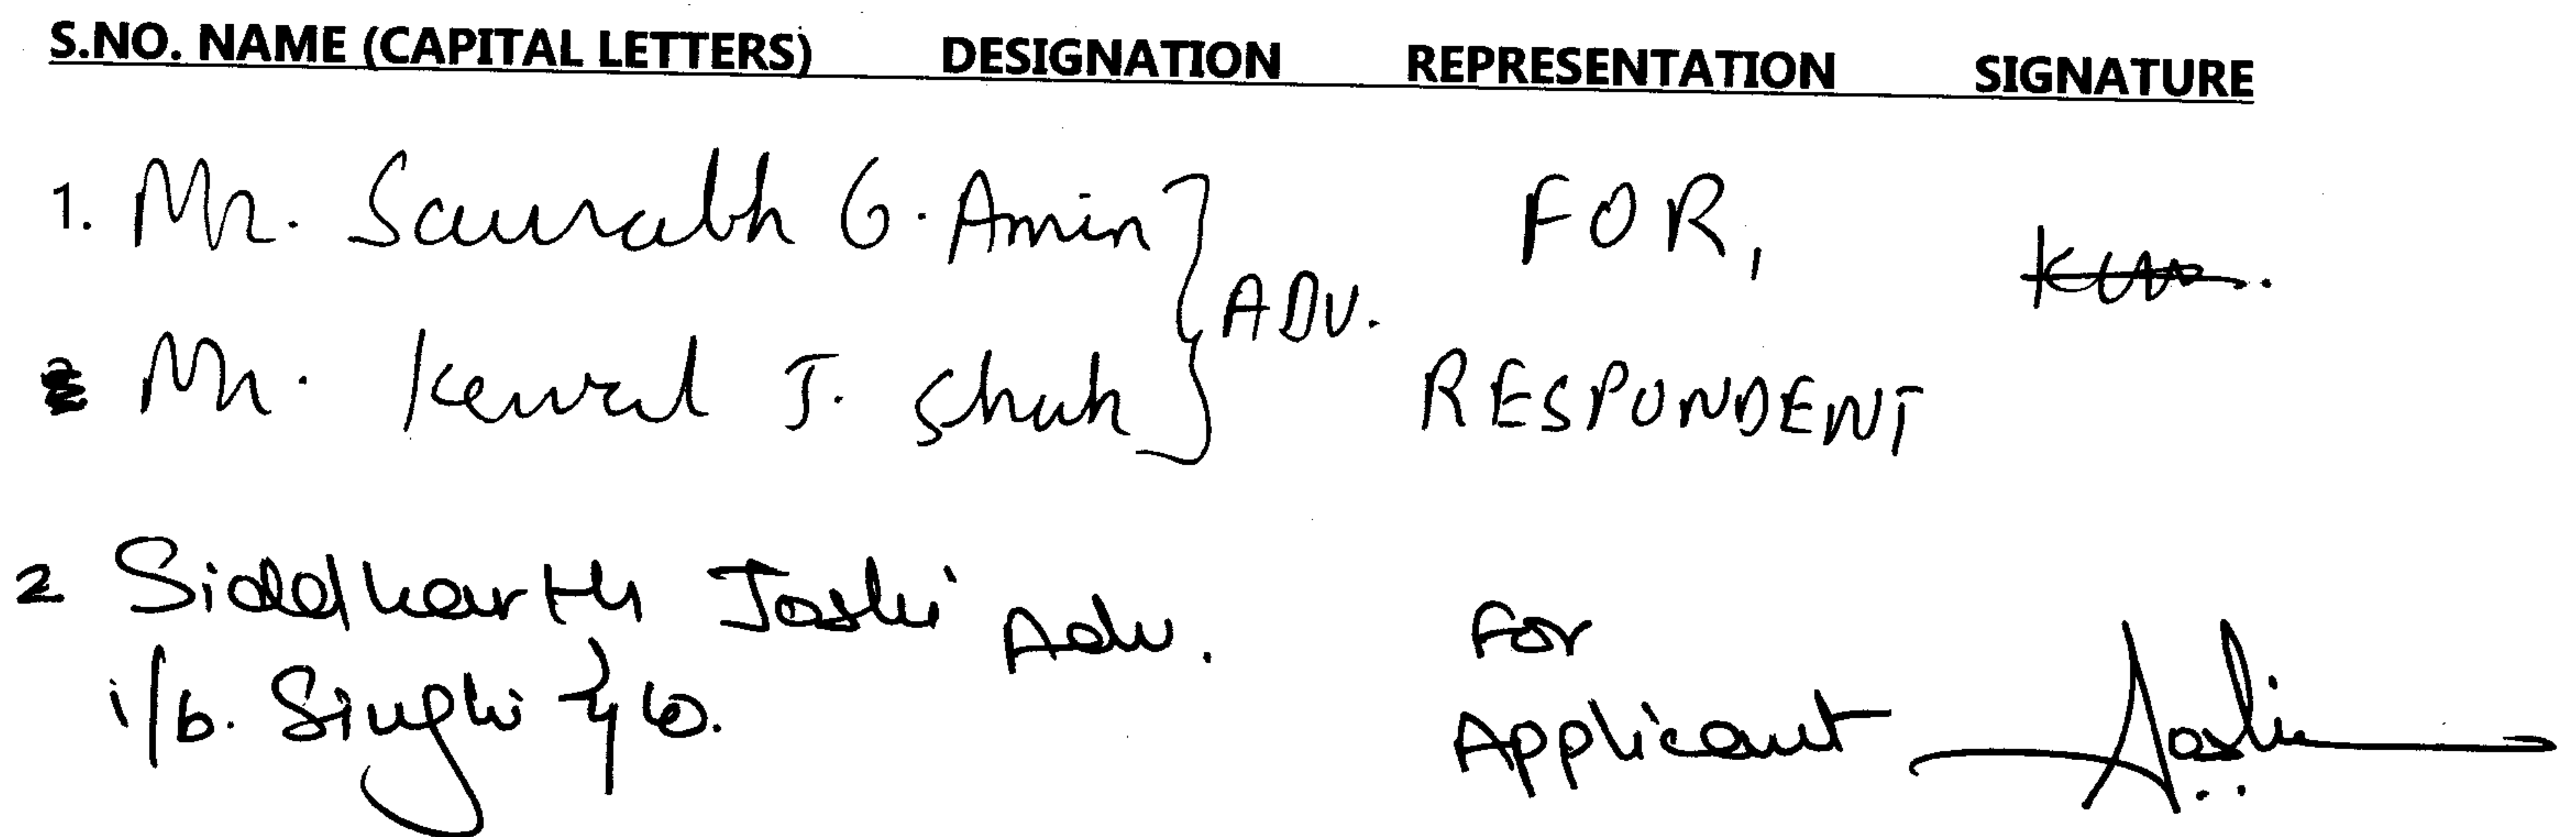 S.NO. NAME (CAPITAL LETTERS) DESIGNATION REPRESENTATION SIGNATURE
1. Mr. Saurabh G. Amin FOR,
ADV.
Mr. Kewal J. Shah RESPONDENT
2 Siddharth Joshi Adv. For
i/b. Singhi & Co. Applicant Joshi